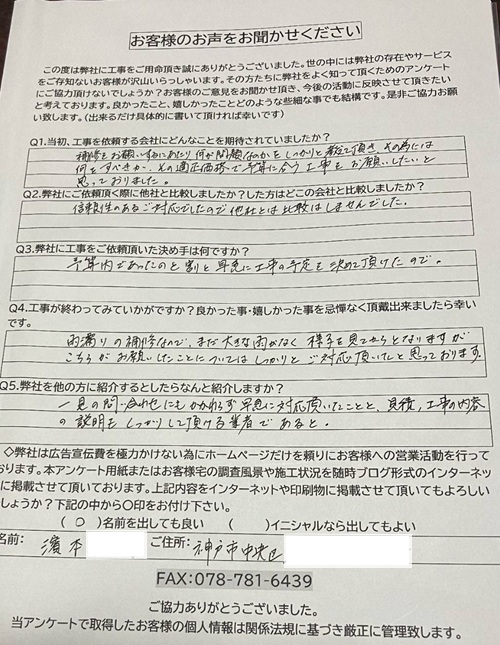 お客様のお声をお聞かせください
この度は弊社に工事をご用命頂き誠にありがとうございました。世の中には弊社の存在やサービス
をご存知ないお客様が沢山いらっしゃいます。その方たちに弊社をよく知って頂くためのアンケート
にご協力頂けないでしょうか?お客様のご意見をお聞かせ頂き、今後の活動に反映させて頂きたい
と考えております。良かったこと、嬉しかったことどのような些細な事でも結構です。是非ご協力お願
い致します。(出来るだけ具体的に書いて頂ければ幸いです)
Q1.当初、工事を依頼する会社にどんなことを期待されていましたか?
補修をお願いするにあたり何が問題なのかをしっかりと教えて頂き、その為には
何をすべきか、その適正価格で予算に合う工事をお願いしたいと
思っておりました。
Q2.弊社にご依頼頂く際に他社と比較しましたか?した方はどこの会社と比較しましたか?
信頼性のあるご対応でしたので他社とは比較はしませんでした。
Q3.弊社に工事をご依頼頂いた決め手は何ですか?
予算内であったのと割と早急に工事の予定を決めて頂けたので。
Q4.工事が終わってみていかがですか?良かった事・嬉しかった事を忌憚なく頂戴出来ましたら幸い
です。
雨漏りの補修なので、まだ大きな雨がなく様子を見てからとなりますが
こちらがお願いしたことについてはしっかりとご対応頂いたと思っております。
Q5.弊社を他の方に紹介するとしたらなんと紹介しますか?
一見の問い合わせにもかかわらず早急に対応頂いたことと、見積、工事の内容
の説明をしっかりして頂ける業者であると。
◇弊社は広告宣伝費を極力かけない為にホームページだけを頼りにお客様への営業活動を行って
おります。本アンケート用紙またはお客様宅の調査風景や施工状況を随時ブログ形式のインターネッ
に掲載させて頂いております。上記内容をインターネットや印刷物に掲載させて頂いてもよろしい
しょうか?下記の中から〇印をお付け下さい。
(〇)名前を出しても良い ( )イニシャルなら出してもよい
名前: 濱本 ご住所: 神戸市中央区
FAX:078-781-6439
ご協力ありがとうございました。
当アンケートで取得したお客様の個人情報は関係法規に基づき厳正に管理致します。